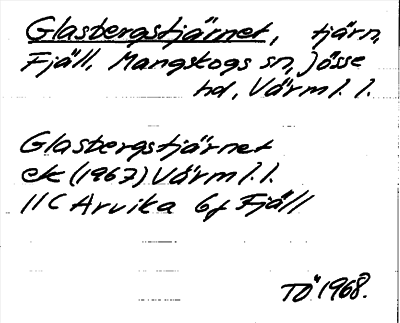 Glasbergstjärnet, tjärn,
Fjäll, Mangskogs sn, Jösse
hd, Värml. l.
Glasbergstjärnet
ek (1967) Värml. l.
11C Arvika 6f Fjäll
TÖ 1968.